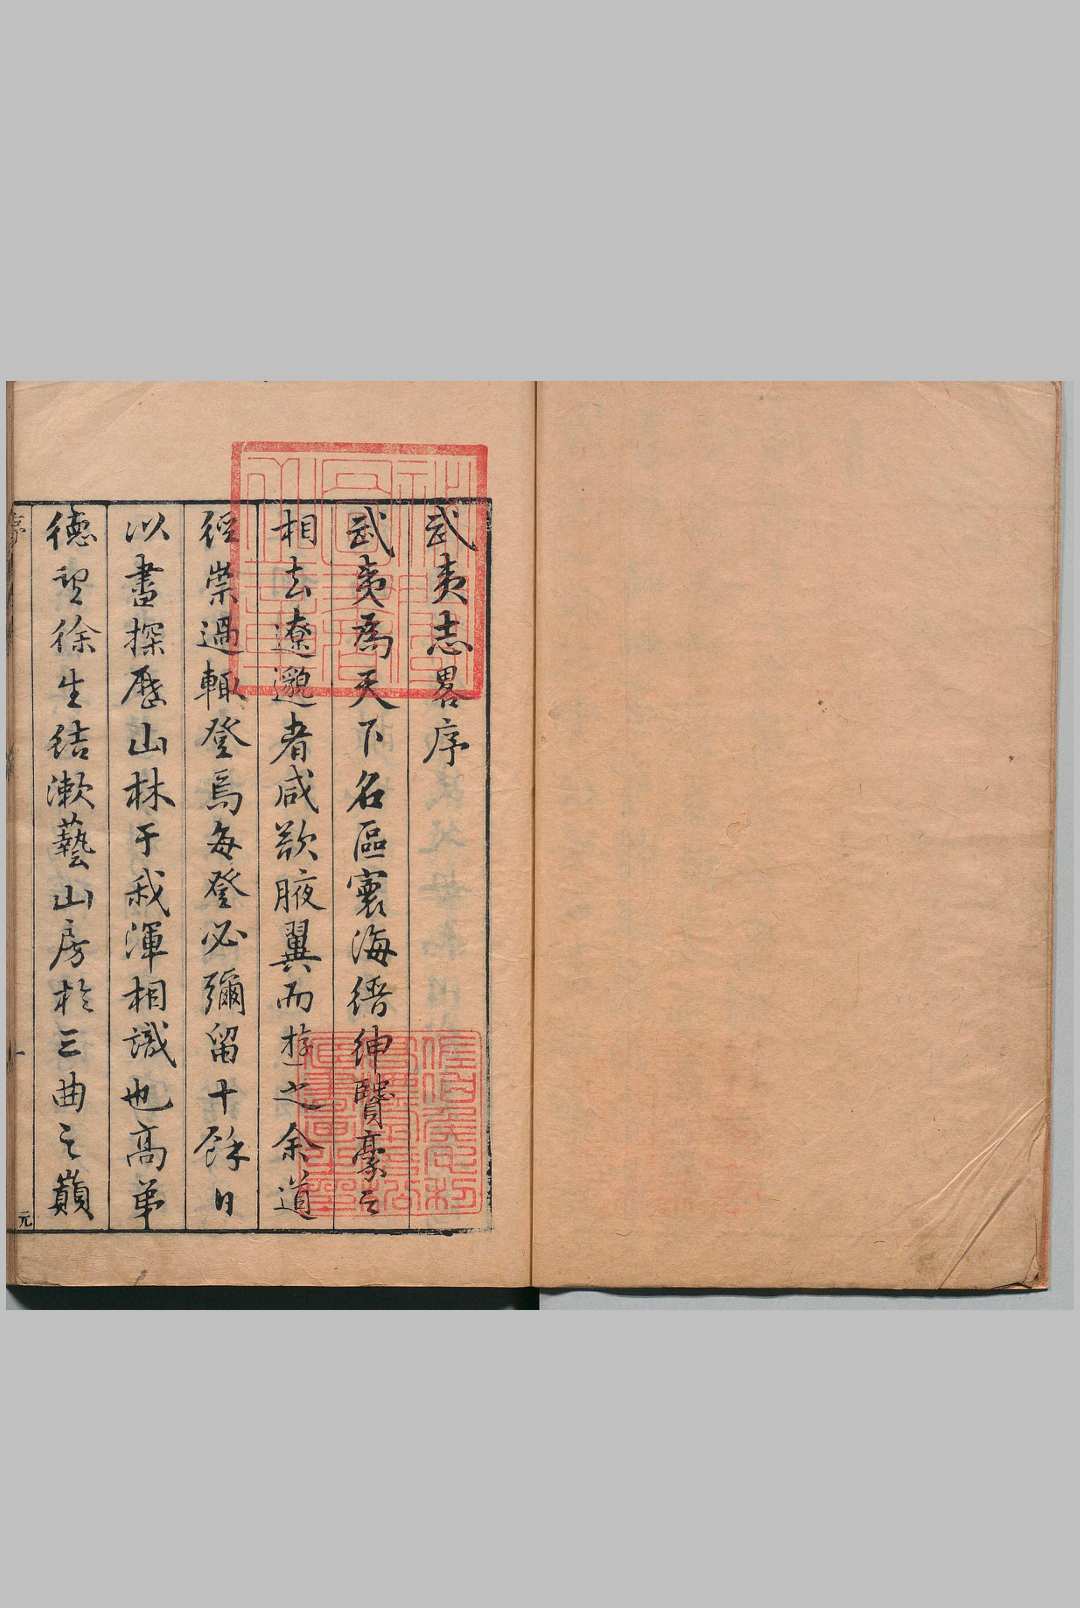 武夷志畧序
武夷為天下名區寰海縉紳賢豪之
相去遼邈者咸欲腋翼而遊之余道
經崇過輒登焉每登必彌留十餘日
以書探歷山林于我渾相識也高弟
德望徐生結漱藝山房於三曲之巔
序
一
元